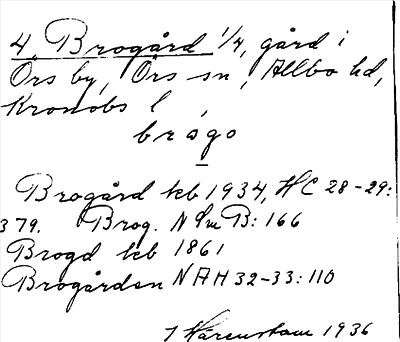 4. Brogård 1/4, gård i
Örs by, Örs sn, Allbo hd,
Kronobs l,
brogo
Brogård kb 1934, HC 28-29:
379. Brog. N Sm B: 166
Brogd kb 1861
Brogården NAH 32-33: 110
J Wärenstam 1936